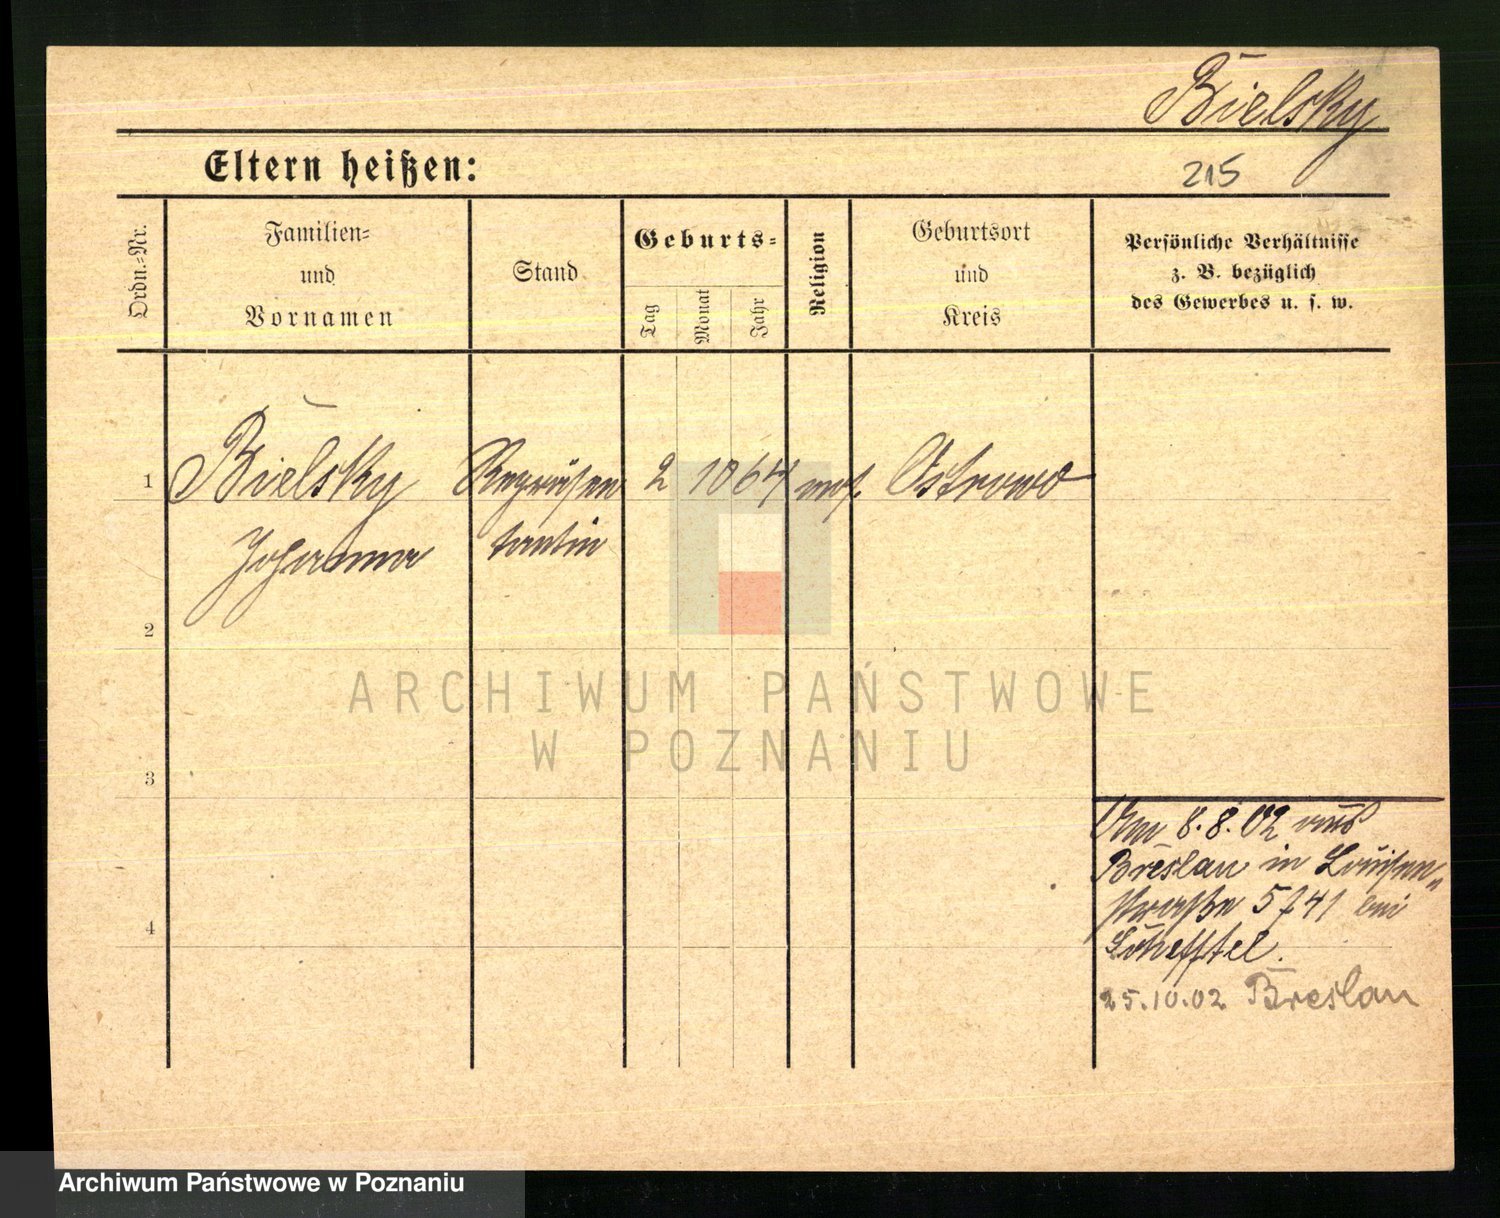 Bielsky
Eltern heißen:
215
Ordn.=Nr.
Familien=
und
Vornamen
Stand
Geburts=
Tag
Monat
Jahr
Religion
Geburtsort
und
Kreis
Persönliche Verhältnisse
z. B. bezüglich
des Gewerbes u. s. w.
1 Bielsky Repräsen 2 10 64 mos. Ostrowo
Johanna tantin
2
3
4
Am 8.8.02 aus
Breslau in Louisen„
straße 5741 bei
Schefftel.
25.10.02 Breslau
ARCHIWUM PAŃSTWOWE
W POZNANIU
Archiwum Państwowe w Poznaniu